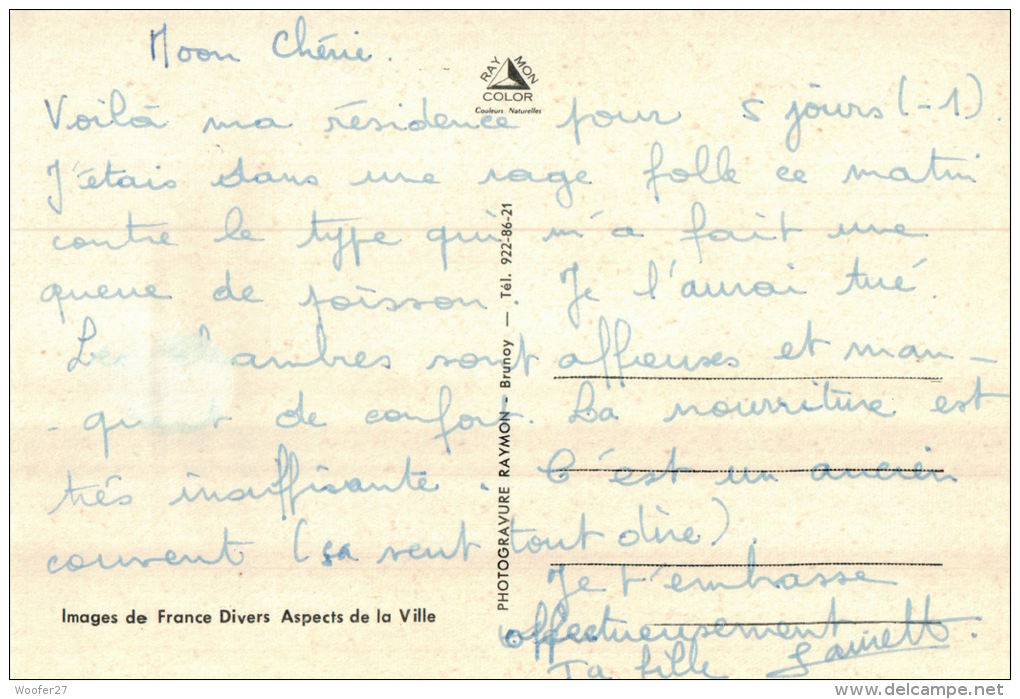 Moon Chérie.
RAYMON
COLOR
Couleurs Naturelles
Voilà ma résidence pour 5 jours (-1).
J'étais dans une rage folle ce matin
contre le type qui m'a fait une
queue de poisson. Je l'aurai tué.
Les chambres sont affreuses et man-
-quent de confort. La nourriture est
très insuffisante. C'est un ancien
couvent (ça veut tout dire).
Je t'embrasse
affectueusement.
Ta fille
PHOTOGRAVURE RAYMON - Brunoy — Tél. 922-86-21
Images de France Divers Aspects de la Ville
Woofer27
www.delcampe.net